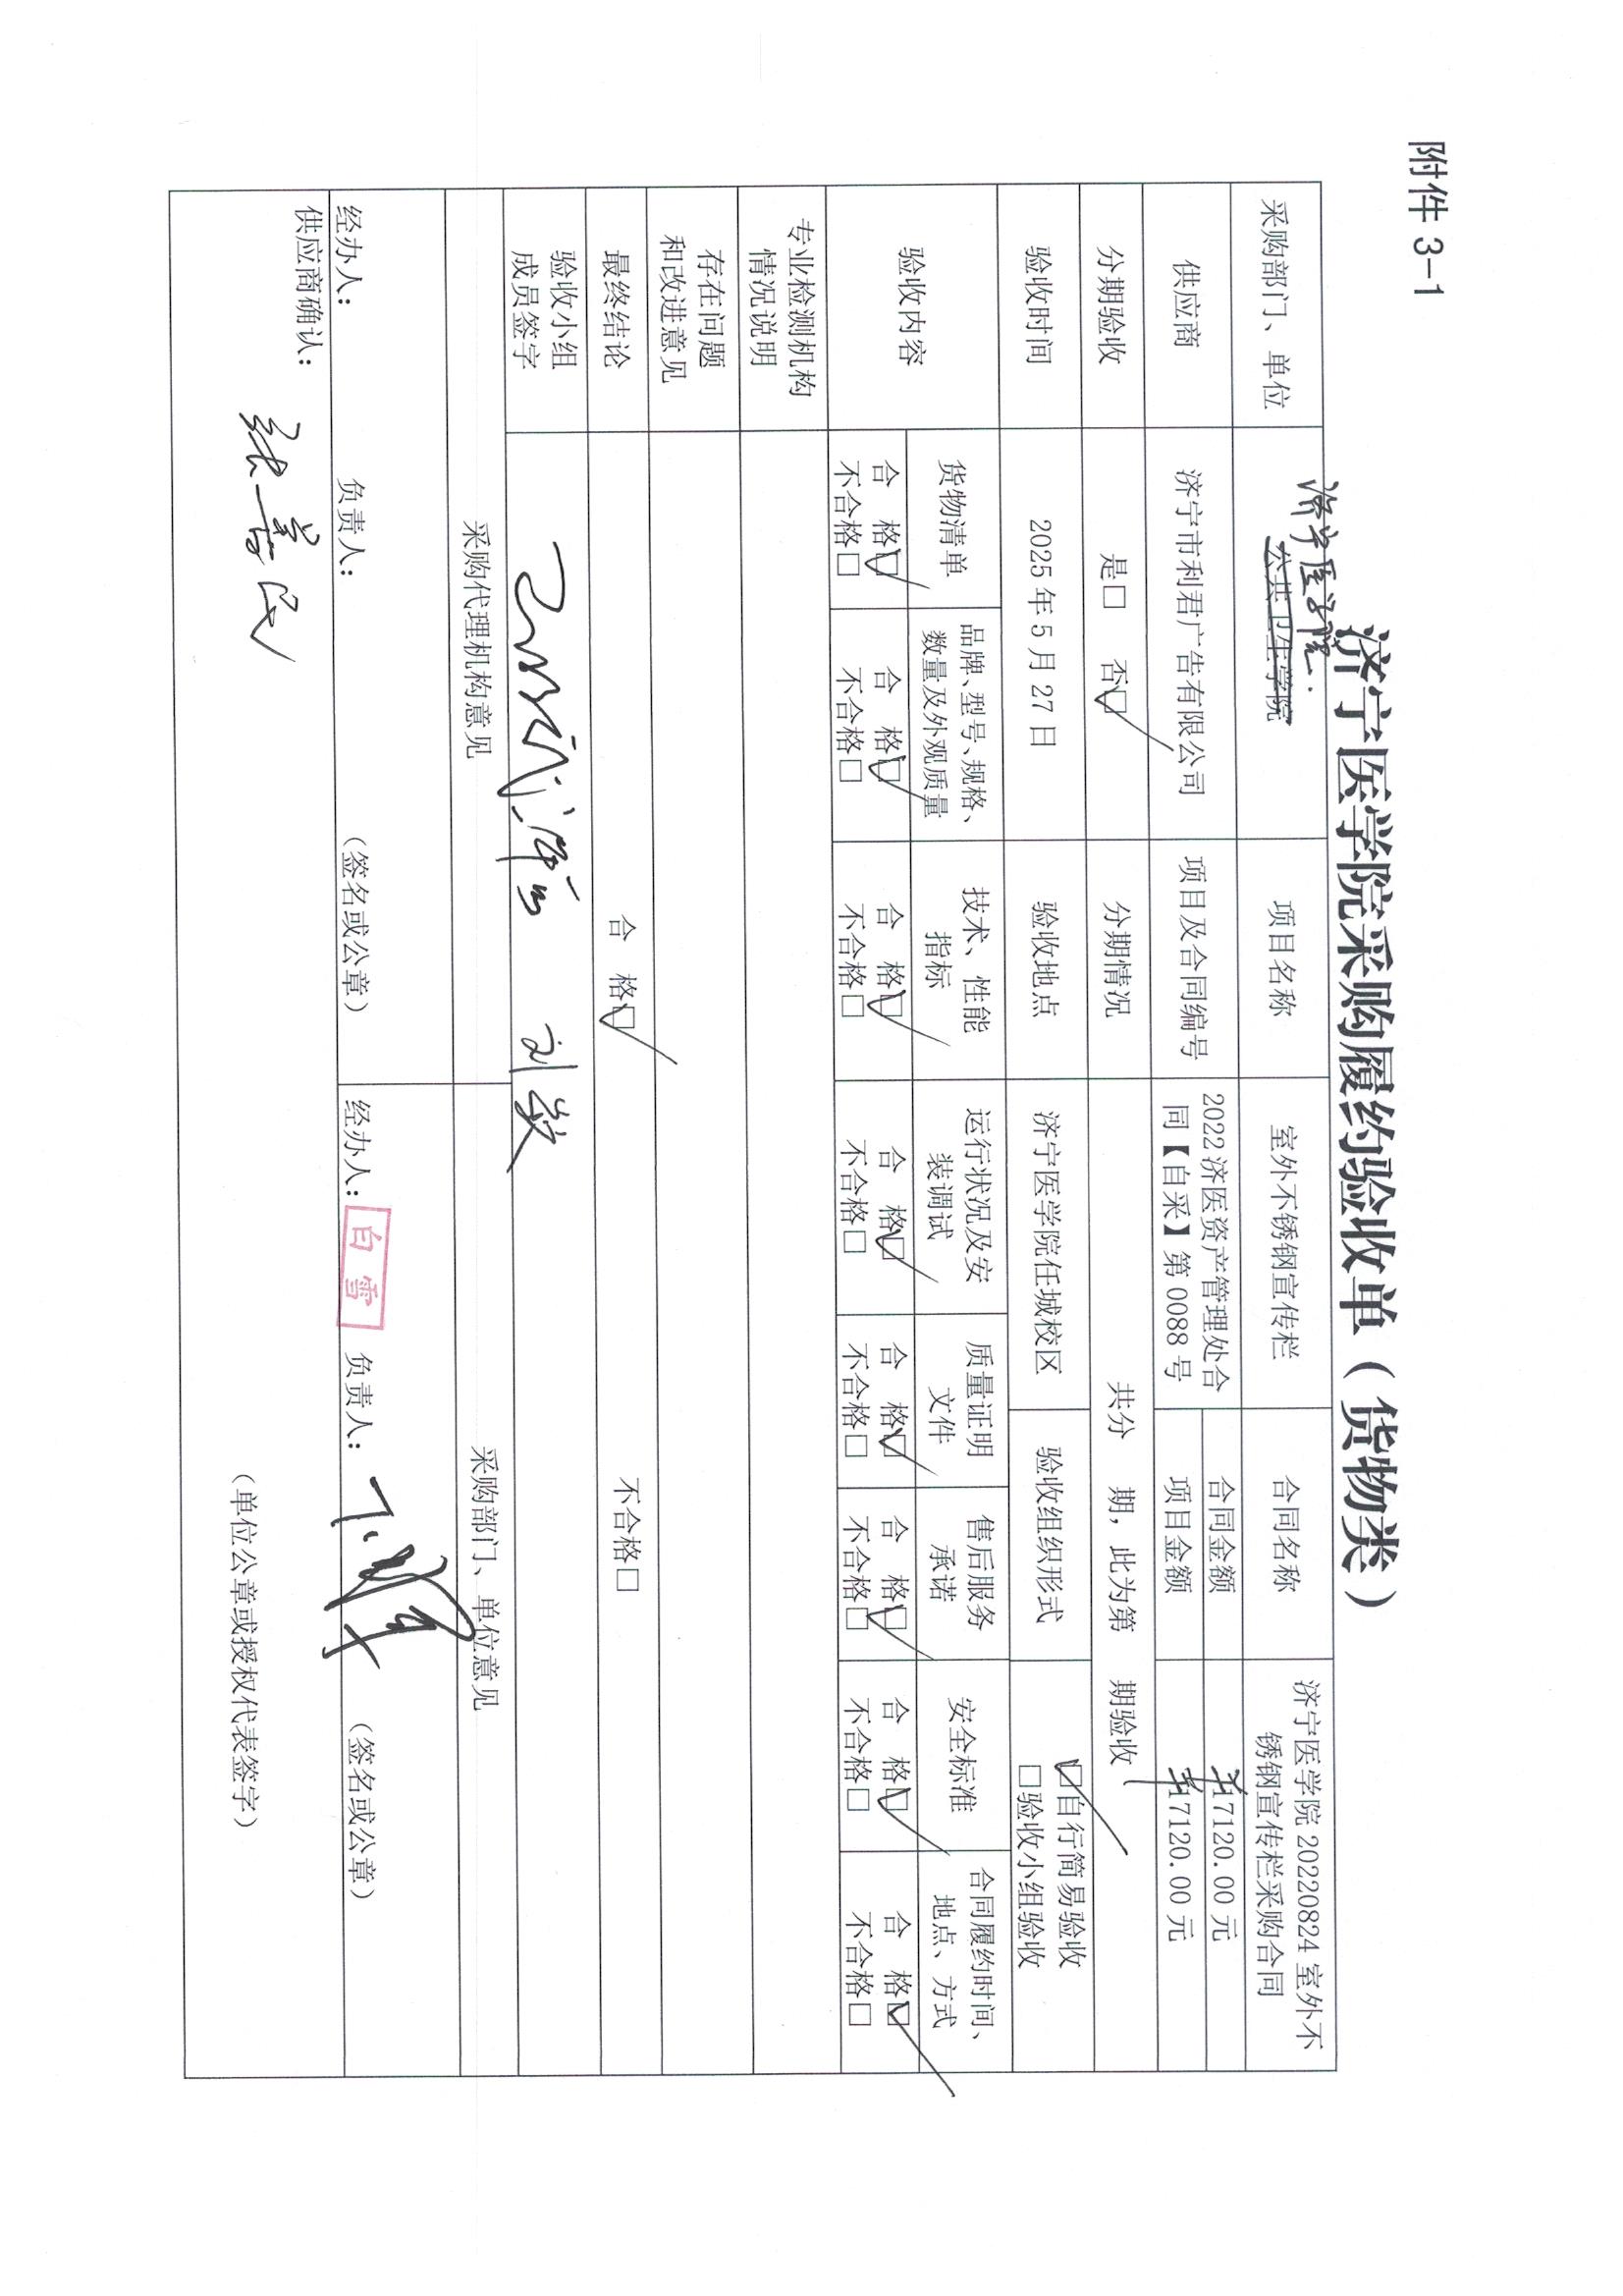 附件 3-1
济宁医学院采购履约验收单（货物类）
济宁医学院.
采购部门、单位 公共卫生学院 项目名称 室外不锈钢宣传栏 合同名称 济宁医学院 20220824 室外不锈钢宣传栏采购合同
供应商 济宁市利君广告有限公司 项目及合同编号 2022 济医资产管理处合同【自采】第 0088 号 合同金额 ¥17120.00 元
项目金额 ¥17120.00 元
分期验收 是□ 否☑ 分期情况 共分 期，此为第 期验收
验收时间 2025 年 5 月 27 日 验收地点 济宁医学院任城校区 验收组织形式 ☑自行简易验收
□验收小组验收
验收内容 货物清单 品牌、型号、规格、数量及外观质量 技术、性能指标 运行状况及安装调试 质量证明文件 售后服务承诺 安全标准 合同履约时间、地点、方式
合 格☑ 合 格☑ 合 格☑ 合 格☑ 合 格☑ 合 格☑ 合 格☑ 合 格☑
不合格□ 不合格□ 不合格□ 不合格□ 不合格□ 不合格□ 不合格□ 不合格□
专业检测机构
情况说明
存在问题
和改进意见
最终结论 合 格☑ 不合格□
验收小组
成员签字
采购代理机构意见 采购部门、单位意见
经办人： 负责人： （签名或公章） 经办人： 白雪 负责人： （签名或公章）
供应商确认：
（单位公章或授权代表签字）